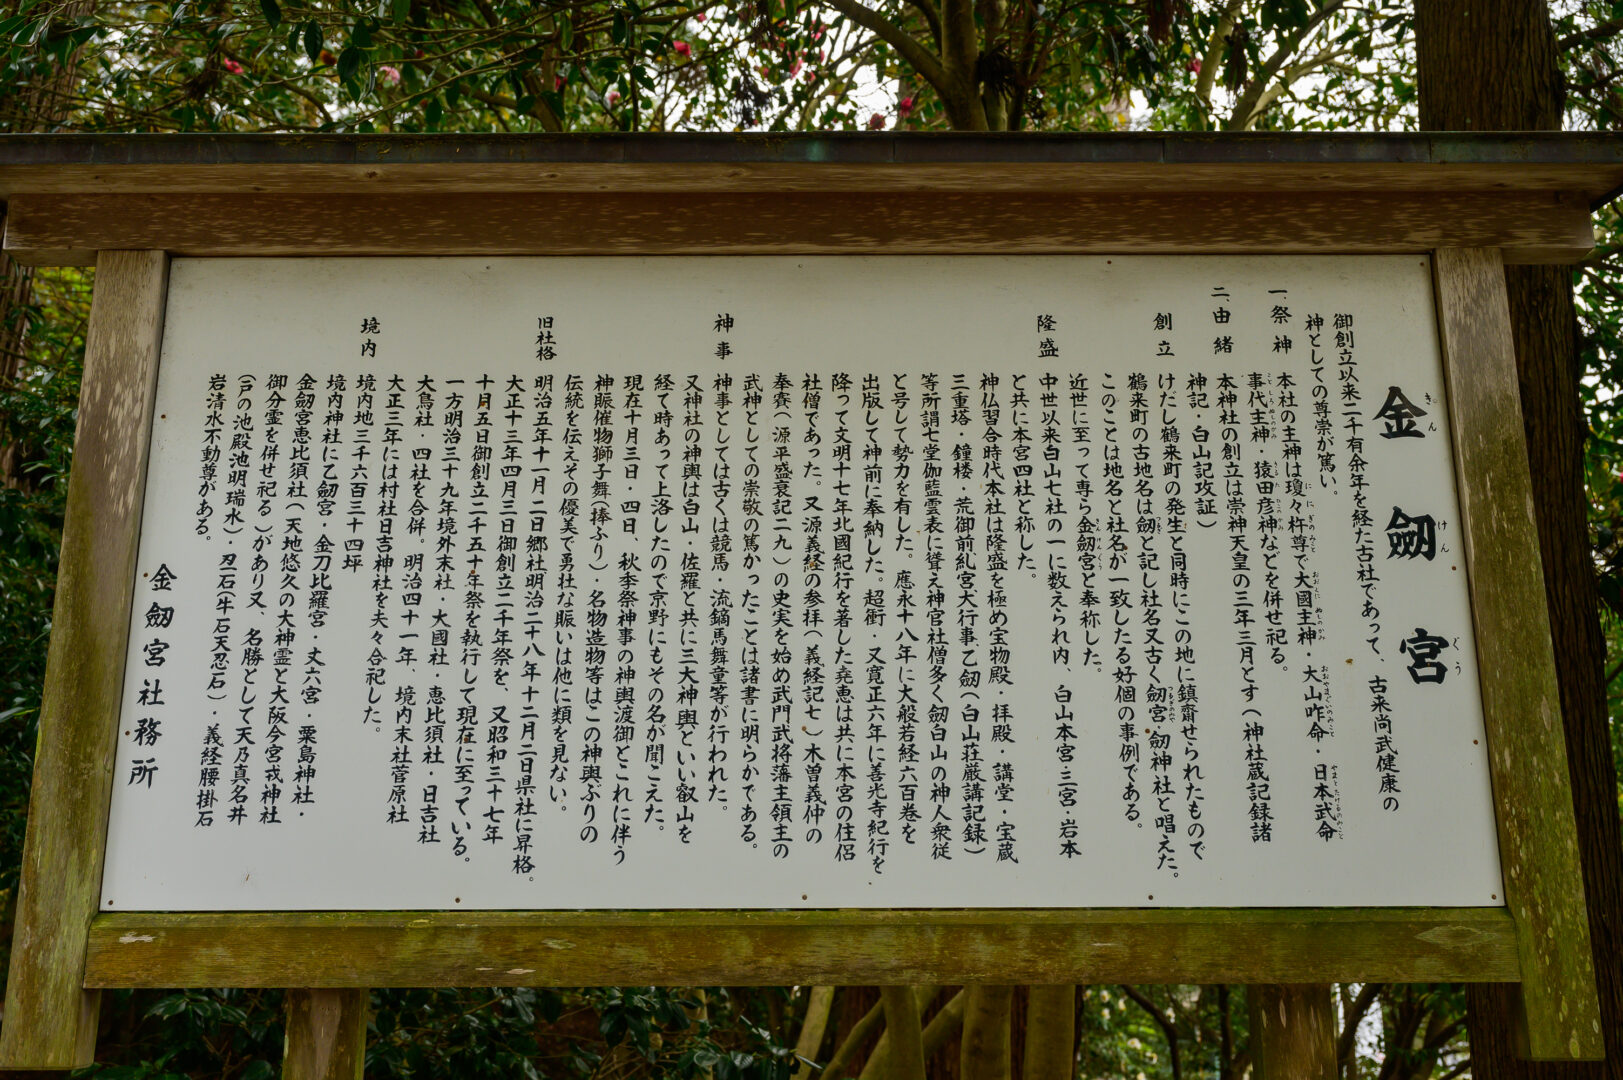 金劔宮
きん けん ぐう
御創立以来二千有余年を経た古社であって、古来尚武健康の
神としての尊崇が篤い。
一、祭神 本社の主神は瓊々杵尊で大國主神・大山咋命・日本武命
事代主神・猿田彦神などを併せ祀る。
二、由緒 本神社の創立は崇神天皇の三年三月とす(神社蔵記録諸
神記・白山記攷証)
創立 けだし鶴来町の発生と同時にこの地に鎮齋せられたもので
鶴来町の古地名は劔と記し社名又古く劔宮・劔神社と唱えた。
このことは地名と社名が一致したる好個の事例である。
近世に至って専ら金劔宮と奉称した。
隆盛 中世以来白山七社の一に数えられ内、白山本宮・三宮・岩本
と共に本宮四社と称した。
神仏習合時代本社は隆盛を極め宝物殿・拝殿・講堂・宝蔵
三重塔・鐘楼・荒御前糺宮大行事乙劔(白山荘厳講記録)
等所謂七堂伽藍雲表に聳え神官社僧多く劔白山の神人衆徒
と号して勢力を有した。應永十八年に大般若経六百巻を
出版して神前に奉納した。超衝・又寛正六年に善光寺紀行を
降って文明十七年北國紀行を著した堯恵は共に本宮の住侶
社僧であった。又源義經の参拝(義経記七)木曽義仲の
奉賽(源平盛衰記二九)の史実を始め武門武将藩主領主の
武神としての崇敬の篤かったことは諸書に明らかである。
神事 神事としては古くは競馬・流鏑馬舞童等が行われた。
又神社の神輿は白山・佐羅と共に三大神輿といい叡山を
経て時あって上洛したので京野にもその名が聞こえた。
現在十月三日・四日、秋季祭神事の神輿渡御とこれに伴う
神賑催物獅子舞(捧ふり)・名物造物等はこの神輿ぶりの
伝統を伝えその優美で勇壮な賑いは他に類を見ない。
旧社格 明治五年十一月二日郷社明治二十八年十二月二日県社に昇格。
大正十三年四月三日御創立二千年祭を、又昭和三十七年
十月五日御創立二千五十年祭を執行して現在に至っている。
一方明治三十九年境外末社・大國社・恵比須社・日吉社
大鳥社・四社を合併。明治四十一年、境内末社菅原社
大正三年には村社日吉神社を夫々合祀した。
境内 境内地三千六百三十四坪
境内神社に乙劔宮・金刀比羅宮・丈六宮・粟島神社・
金劔宮恵比須社(天地悠久の大神霊と大阪今宮戎神社
御分霊を併せ祀る)があり又、名勝として天乃真名井
(戸の池殿池明瑞水)・忍石(牛石天忍石)・義経腰掛石
岩清水不動尊がある。
金劔宮社務所